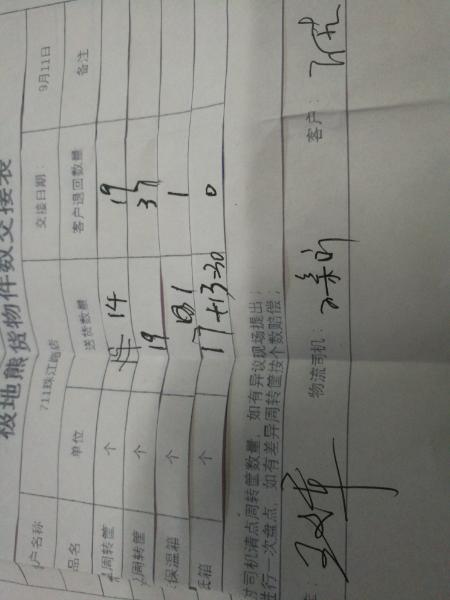 极地熊货物件数交接表
户名称 711珠江驰店 交接日期: 9月11日
品名 单位 送货数量 客户退回数量 备注
周转筐 个 14 19
周转筐 个 19 37
保温箱 个 1 1
纸箱 个 17+13=30 0
司机清点周转筐数量, 如有异议现场提出;
进行一次盘点, 如有差异周转筐按个数赔偿;
物流司机: 客户: